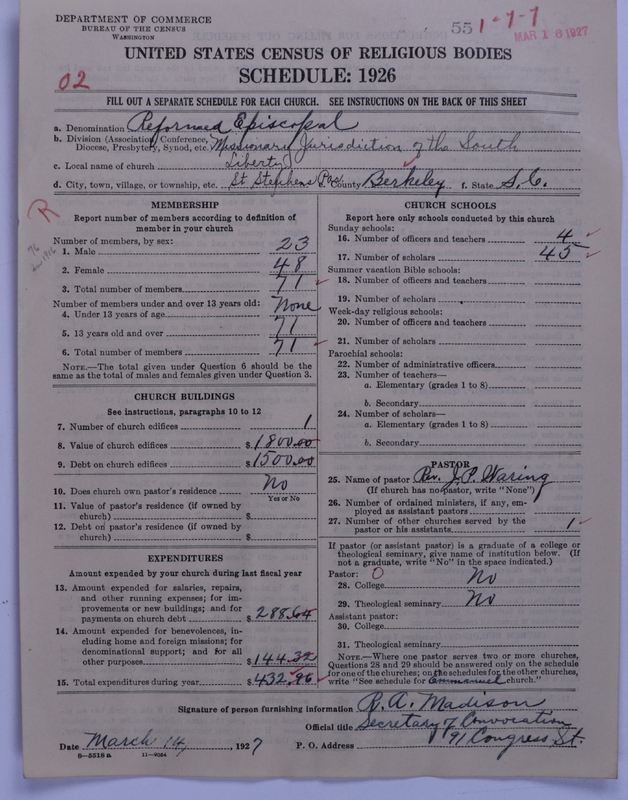 DEPARTMENT OF COMMERCE
BUREAU OF THE CENSUS
WASHINGTON
55 1-7-7
MAR 16 1927
UNITED STATES CENSUS OF RELIGIOUS BODIES
SCHEDULE: 1926
02
FILL OUT A SEPARATE SCHEDULE FOR EACH CHURCH. SEE INSTRUCTIONS ON THE BACK OF THIS SHEET
a. Denomination Reformed Episcopal
b. Division (Association, Conference, Diocese, Presbytery, Synod, etc. Missionary Jurisdiction of the South
c. Local name of church Liberty
d. City, town, village, or township, etc. St Stephens Par. e. County Berkeley f. State S.C.
R
MEMBERSHIP
Report number of members according to definition of
member in your church
Number of members, by sex:
1. Male 23
2. Female 48
3. Total number of members 71
Number of members under and over 13 years old:
4. Under 13 years of age None
5. 13 years old and over 71
6. Total number of members 71
NOTE.—The total given under Question 6 should be
same as the total of males and females given under Question 3.
CHURCH BUILDINGS
See instructions, paragraphs 10 to 12
7. Number of church edifices 1
8. Value of church edifices $ 1800.00
9. Debt on church edifices $ 1500.00
10. Does church own pastor's residence No
Yes or No
11. Value of pastor's residence (if owned by
church) $
12. Debt on pastor's residence (if owned by
church) $
EXPENDITURES
Amount expended by your church during last fiscal year
13. Amount expended for salaries, repairs,
and other running expenses; for im-
provements or new buildings; and for
payments on church debt $ 288.64
14. Amount expended for benevolences, in-
cluding home and foreign missions; for
denominational support; and for all
other purposes $ 144.32
15. Total expenditures during year $ 432.96
CHURCH SCHOOLS
Report here only schools conducted by this church
Sunday schools:
16. Number of officers and teachers 4
17. Number of scholars 45
Summer vacation Bible schools:
18. Number of officers and teachers
19. Number of scholars
Week-day religious schools:
20. Number of officers and teachers
21. Number of scholars
Parochial schools:
22. Number of administrative officers
23. Number of teachers—
a. Elementary (grades 1 to 8)
b. Secondary
24. Number of scholars—
a. Elementary (grades 1 to 8)
b. Secondary
PASTOR
25. Name of pastor Rev. J. P. Waring
(If church has no pastor, write "None")
26. Number of ordained ministers, if any, em-
ployed as assistant pastors
27. Number of other churches served by the
pastor or his assistants 1
If pastor (or assistant pastor) is a graduate of a college or
theological seminary, give name of institution below. (If
not a graduate, write "No" in the space indicated.)
Pastor: 0
28. College No
29. Theological seminary No
Assistant pastor:
30. College
31. Theological seminary
NOTE.—Where one pastor serves two or more churches,
Questions 28 and 29 should be answered only on the schedule
for one of the churches; on the schedules for the other churches,
write "See schedule for Emmanuel church."
Signature of person furnishing information R. A. Madison
Official title Secretary of Convocation
Date March 14, 1927 P. O. Address 91 Congress St.
8—5518 a 11—9064